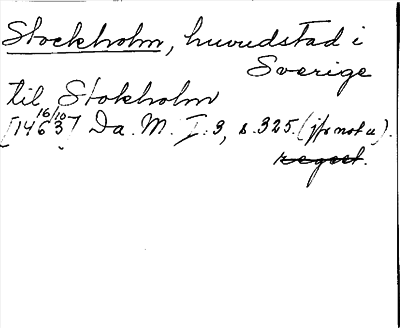 Stockholm, huvudstad i
Sverige
til Stokholm
[14 16/10 63] Da. M. I. 3, s. 325. (jfr not u).
regest.